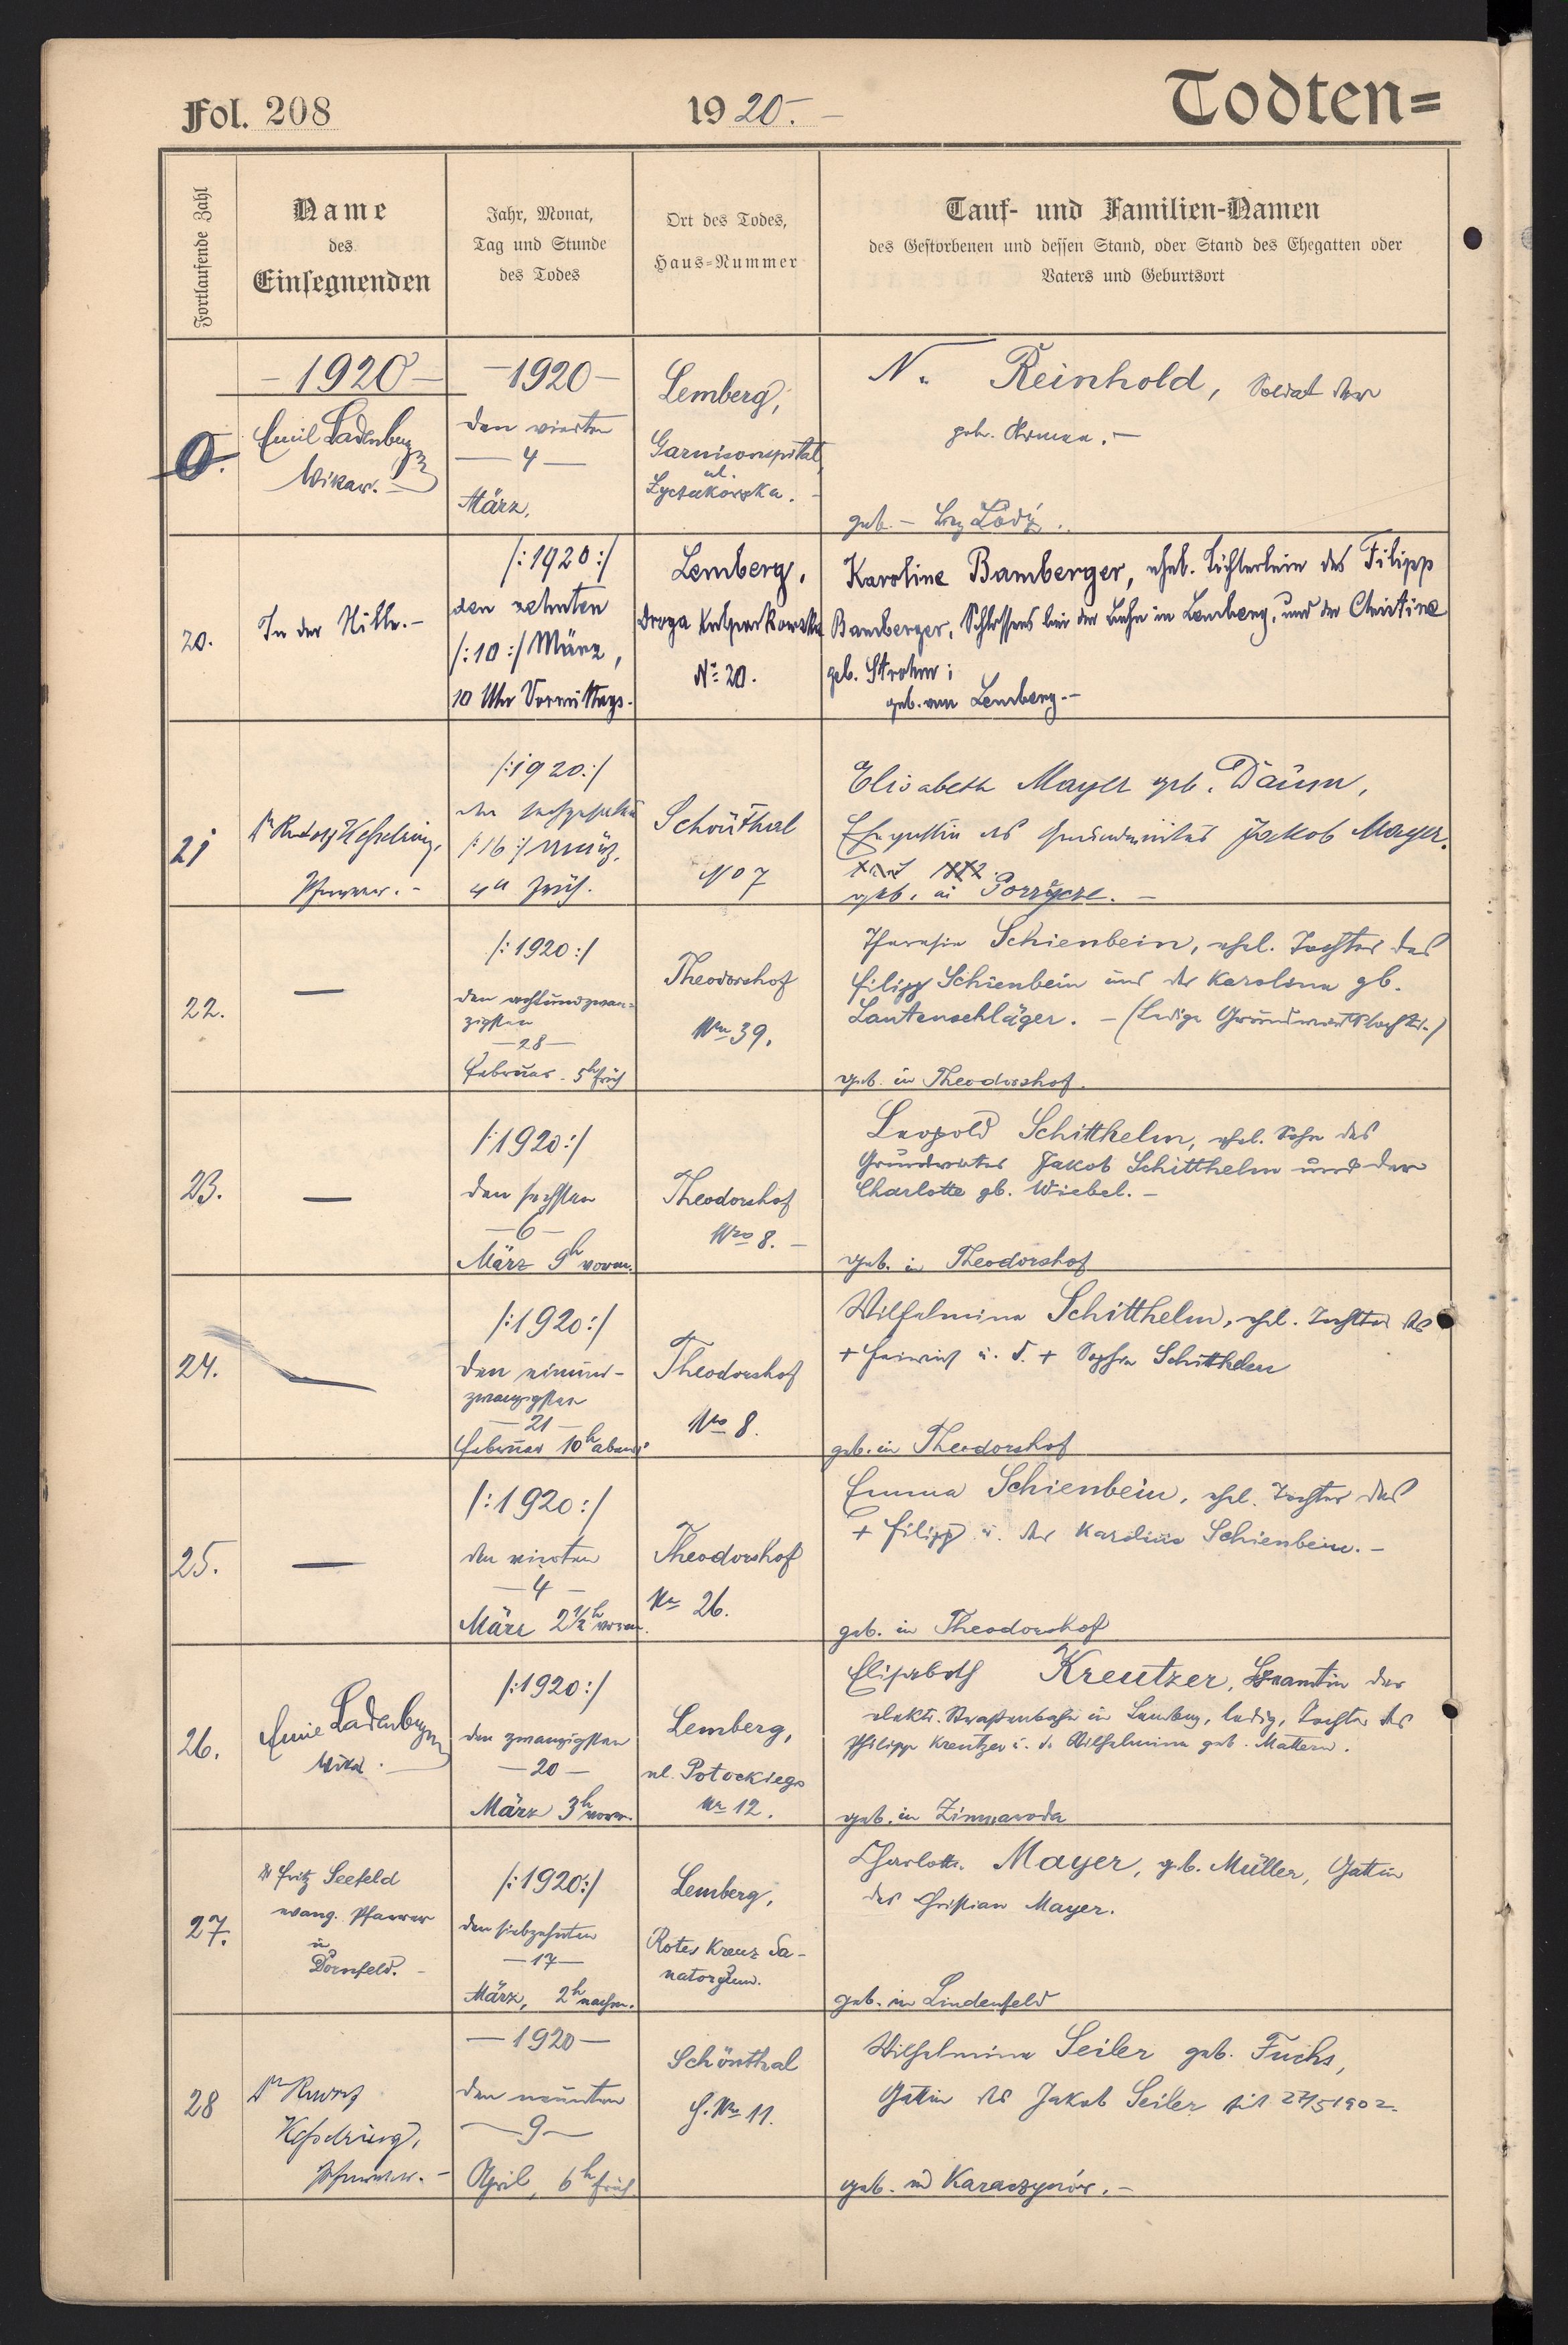 Fol. 208
1920.
Todten=
Fortlaufende Zahl
Name
des
Einsegnenden
Jahr, Monat,
Tag und Stunde
des Todes
Ort des Todes,
Haus-Nummer
Tauf- und Familien-Namen
des Gestorbenen und dessen Stand, oder Stand des Ehegatten oder
Vaters und Geburtsort
0.
– 1920 –
Emil Ladenberger
Vikar.
– 1920 –
den vierten
– 4 –
März.
Lemberg,
Garnisonspital,
ul.
Lyczakowska. –
N. Reinhold, Soldat der
geb. – Łódź.
20.
In der Stille. –
/:1920:/
den zehnten
/:10:/ März,
10 Uhr Vormittags.
Lemberg,
Droga Kulparkowska
No 20.
Karoline Bamberger, ehel. Töchterlein des Filipp
Bamberger, Schlossers bei der Bahn in Lemberg, und der Christine
geb. Strohm;
geb. am Lemberg. –
21
Dr Rudolf Kesselring,
Pfarrer. –
/:1920:/
den sechzehnten
/:16:/ März,
4 U früh.
Schönthal
No 7
Elisabeth Mayer geb. Daum,
Ehegattin des Grundwirtes Jakob Mayer.
geb. in Porzycze. –
22.
—
/:1920:/
den achtundzwan=
zigsten
– 28 –
Februar. 5h früh
Theodorshof
Nro 39.
Theresia Schienbein, ehel. Tochter des
Filipp Schienbein und der Karolina gb.
Lautenschläger. – (Ledige Grundwirtstochter.)
geb. in Theodorshof.
23.
—
/:1920:/
den sechsten
– 6 –
März 9h vorm.
Theodorshof
Nro 8. –
Leopold Schitthelm, ehel. Sohn des
Grundwirtes Jakob Schitthelm und der
Charlotte gb. Wiebel. –
geb. in Theodorshof
24.
—
/:1920:/
den einund-
zwanzigsten
– 21 –
Februar 10h abends
Theodorshof
Nro 8.
Wilhelmina Schitthelm, ehel. Tochter des
+ Heinrich u. d. + Sophie Schitthelm
geb. in Theodorshof
25.
—
/:1920:/
den vierten
– 4 –
März 2½h vorm.
Theodorshof
Nr 26.
Emma Schienbein, ehel. Tochter des
+ Filipp u. der Karolina Schienbein. –
geb. in Theodorshof
26.
Emil Ladenberger
Vikar. –
/:1920:/
den zwanzigsten
– 20 –
März 3h vorm.
Lemberg,
ul. Potockiego
Nr 12.
Elisabeth Kreutzer, Beamtin der
elektr. Strassenbahn in Lemberg, ledig, Tochter des
Philipp Kreutzer u. d. Wilhelmina geb. Mattern.
geb. in Zimnawoda
27.
Dr Fritz Seefeld
evang. Pfarrer
in
Dornfeld. –
/:1920:/
den siebzehnten
– 17 –
März, 2h nachm.
Lemberg,
Rotes Kreuz Sa-
natorium.
Charlotte Mayer, geb. Müller, Gattin
des Christian Mayer.
geb. in Lindenfeld
28
Dr Rudolf
Kesselring,
Pfarrer. –
– 1920 –
den neunten
– 9 –
April, 6h früh.
Schönthal
H. Nro 11.
Wilhelmine Seiler geb. Fuchs,
Gattin des Jakob Seiler seit 27/5 1902.
geb. in Karaczynów. –